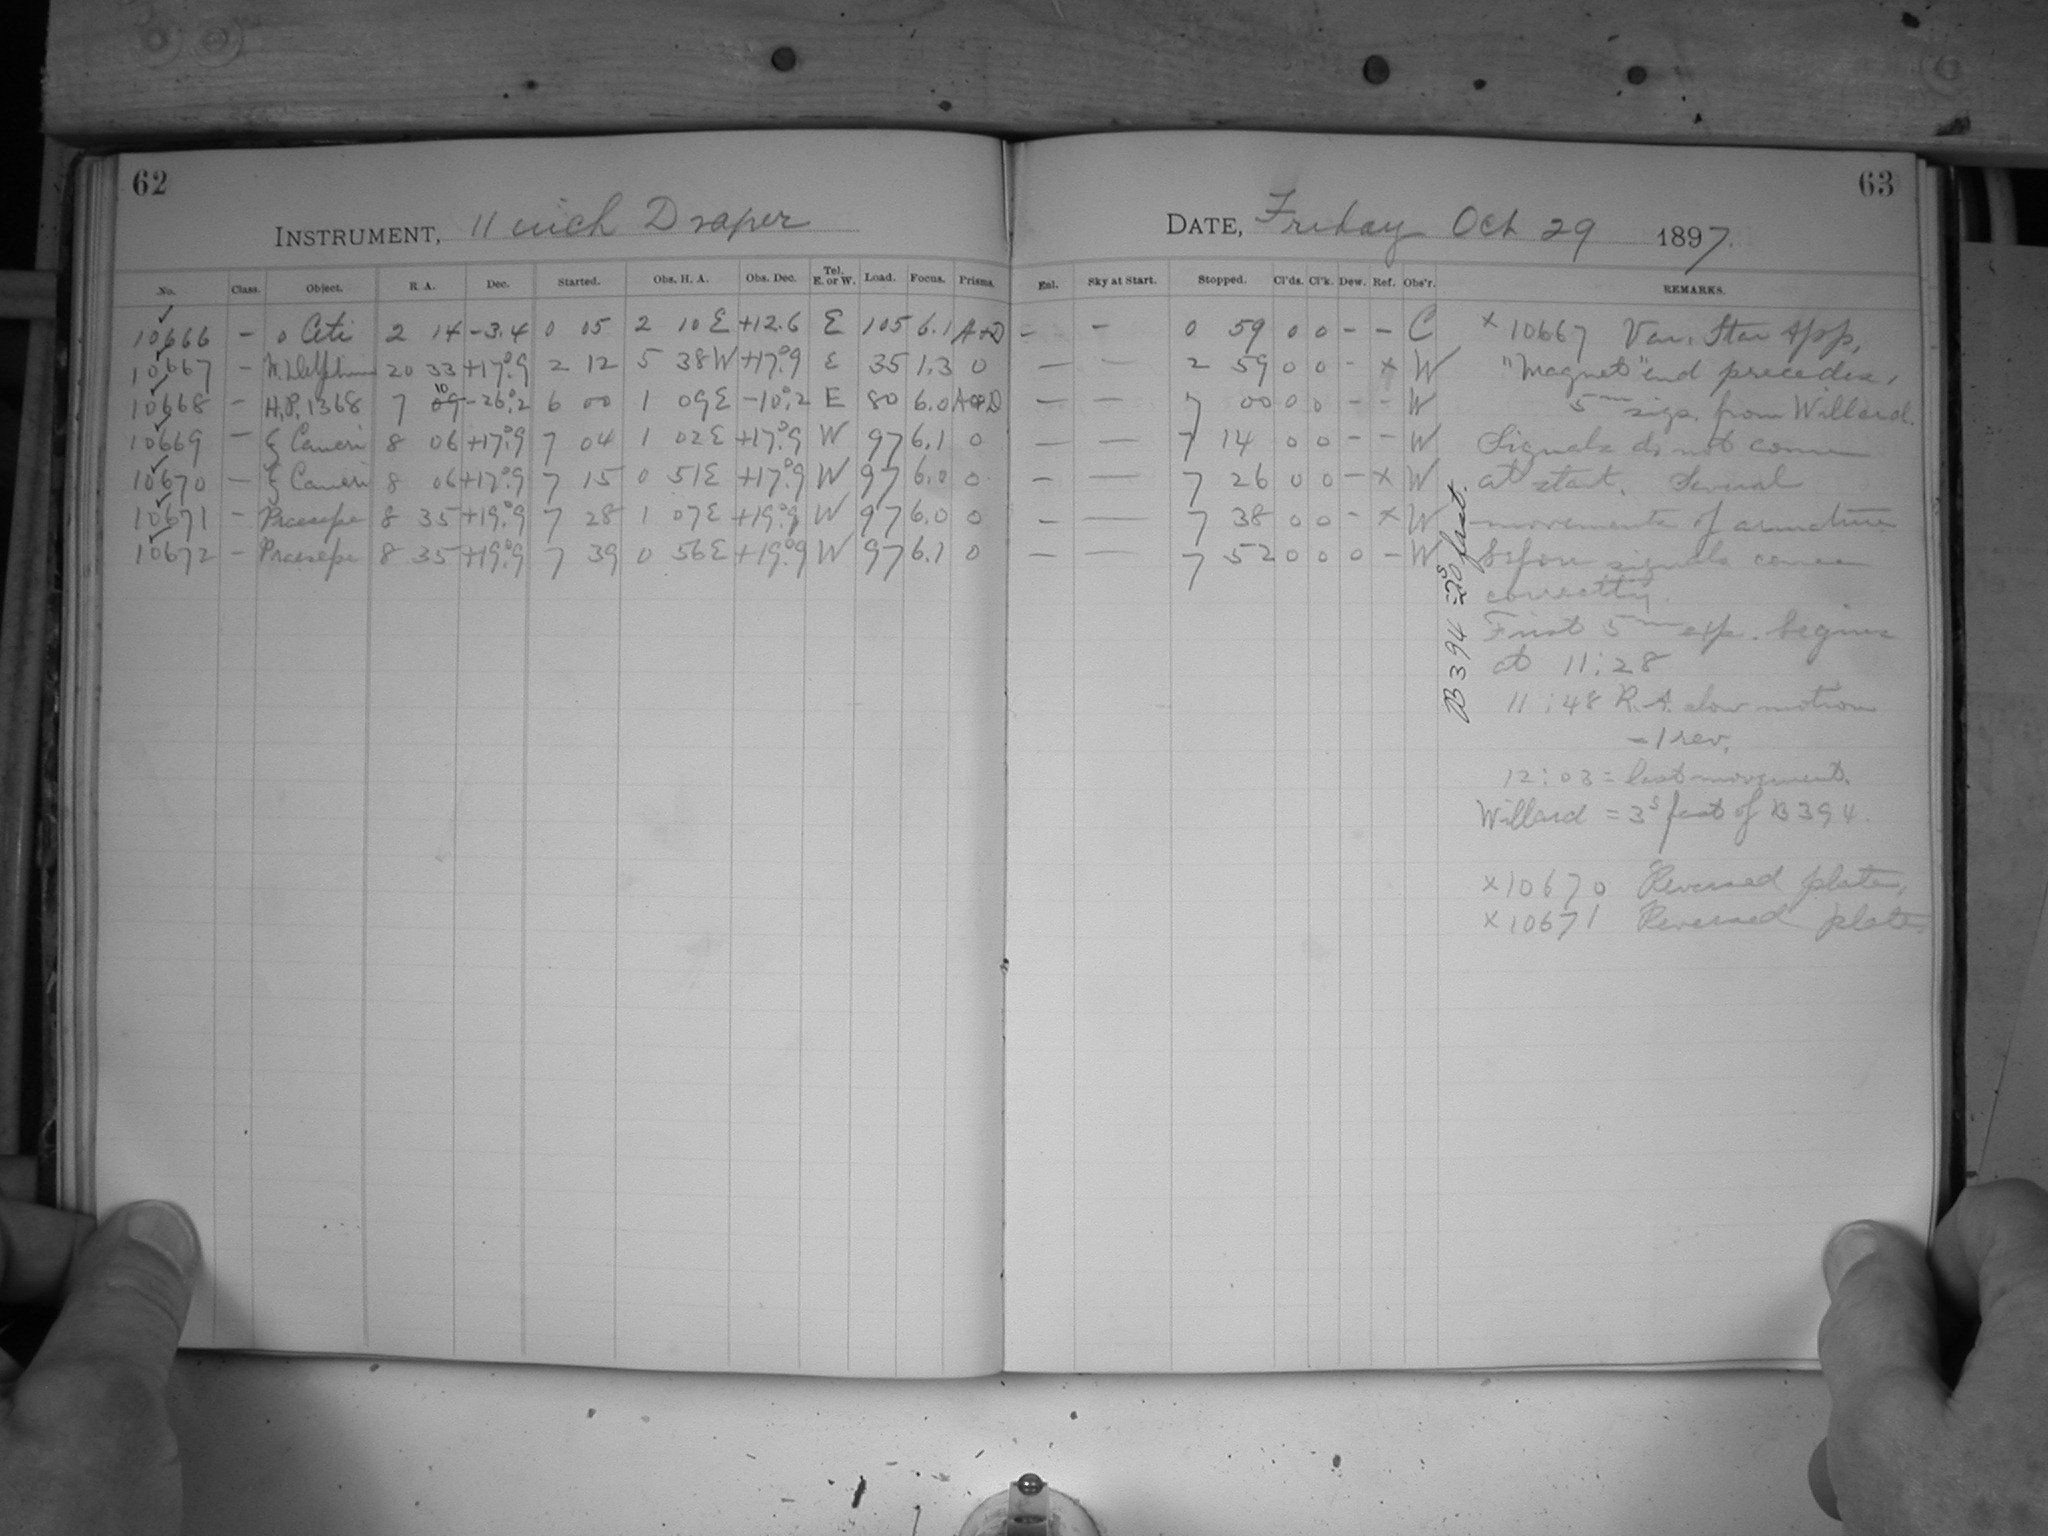 62
INSTRUMENT, 11 inch Draper
No. Class. Object. R. A. Dec. Started. Obs. H. A. Obs. Dec. Tel. E. or W. Load. Focus. Prisms.
10666 – o Ceti 2 14 -3.4 0 05 2 10 E +12.6 E 105 6.1 A+D
10667 – W. Delphini 20 33 +17°.9 2 12 5 38 W +17°.9 E 35 1.3 0
10668 – H.P. 1368 7 09 10 -26°.2 6 00 1 09 E -10°.2 E 80 6.0 A+D
10669 – ξ Cancri 8 06 +17°.9 7 04 1 02 E +17°.9 W 97 6.1 0
10670 – ξ Cancri 8 06 +17°.9 7 15 0 51 E +17°.9 W 97 6.0 0
10671 – Praesepe 8 35 +19°.9 7 28 1 07 E +19°.9 W 97 6.0 0
10672 – Praesepe 8 35 +19°.9 7 39 0 56 E +19°.9 W 97 6.1 0
63
DATE, Friday Oct 29 1897.
Enl. Sky at Start. Stopped. Cl'ds. Cl'k. Dew. Ref. Obs'r. REMARKS.
– – 0 59 0 0 – – C
– – 2 59 0 0 – x W
– – 7 00 0 0 – – W
– – 7 14 0 0 – – W
– – 7 26 0 0 – x W
– – 7 38 0 0 – x W
– – 7 52 0 0 0 – W
B 394 = 20s fast.
x 10667 Var. Star App,
"Magnet" end precedes,
5m sigs. from Willard.
Signals do not come
at start. Several
movements of armature
before signals come
correctly.
First 5m exp. begins
at 11:28
11:48 R.A. slow motion
-1 rev.
12:03 = last movement.
Willard = 3s fast of B 394.
x 10670 Reversed plate,
x 10671 Reversed plate,